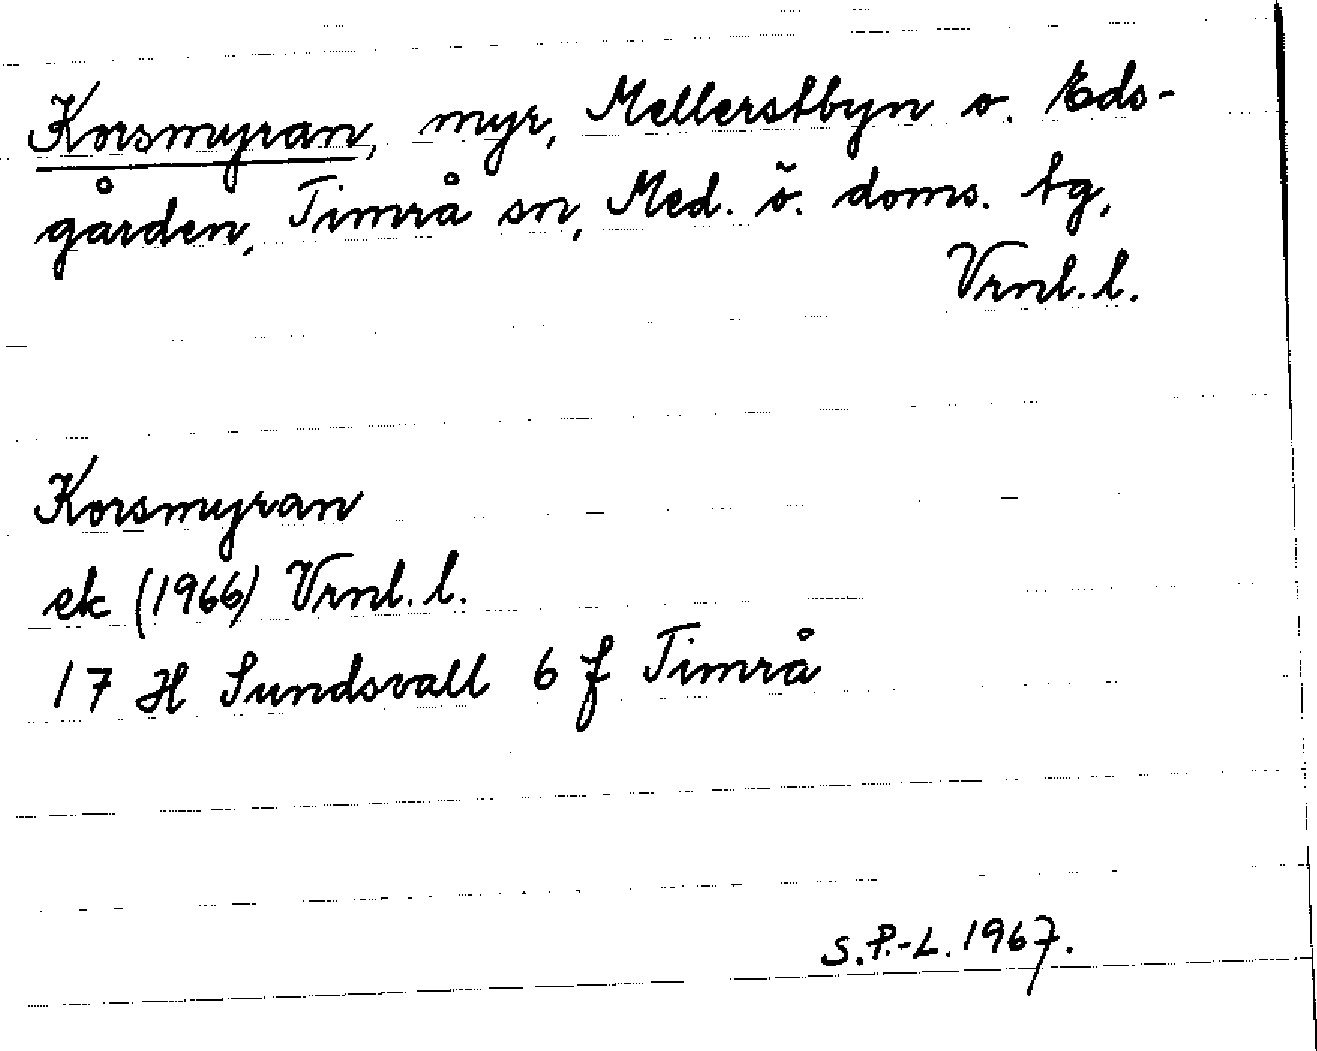 Korsmyran, myr, Mellerstbyn o. Eds-
gården, Timrå sn, Med. ö. doms. tg,
Vrnl. l.
Korsmyran
ek (1966) Vrnl. l.
17 H Sundsvall 6 f Timrå
S.P.-L. 1967.